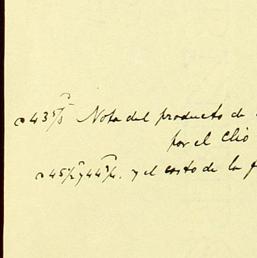 a 43 5/8 Nota del producto de
por el Clio
a 45 1/2 y 44 3/4. y el costo de la